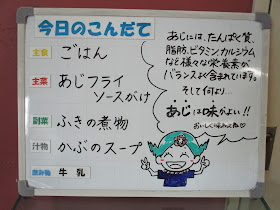 今日のこんだて
主食 ごはん
主菜 あじフライ
ソースがけ
副菜 ふきの煮物
汁物 かぶのスープ
飲み物 牛乳
あじには、たんぱく質、
脂肪、ビタミン、カルシウム
など様々な栄養素が
バランスよく含まれています。
そして何より…
あじは味がよい!!
おいしく味わってね♡